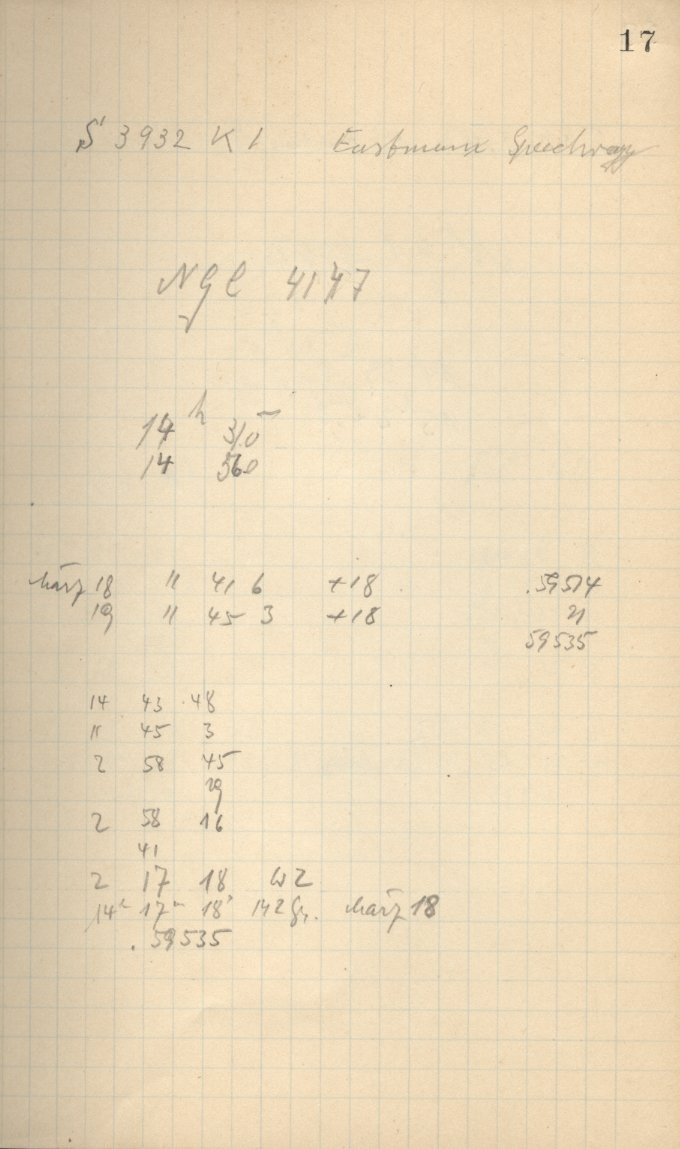 17
S 3932 K 1 Eastman
NGC 4147
14 h 31.0 m
14 36.0
März 18 11 41 6 +18 .59514
19 11 45 3 +18 21
59535
14 43 48
11 45 3
2 58 45
29
2 58 16
41
2 17 18 W2
14h 17m 18s M2 Gr. März 18
.59535